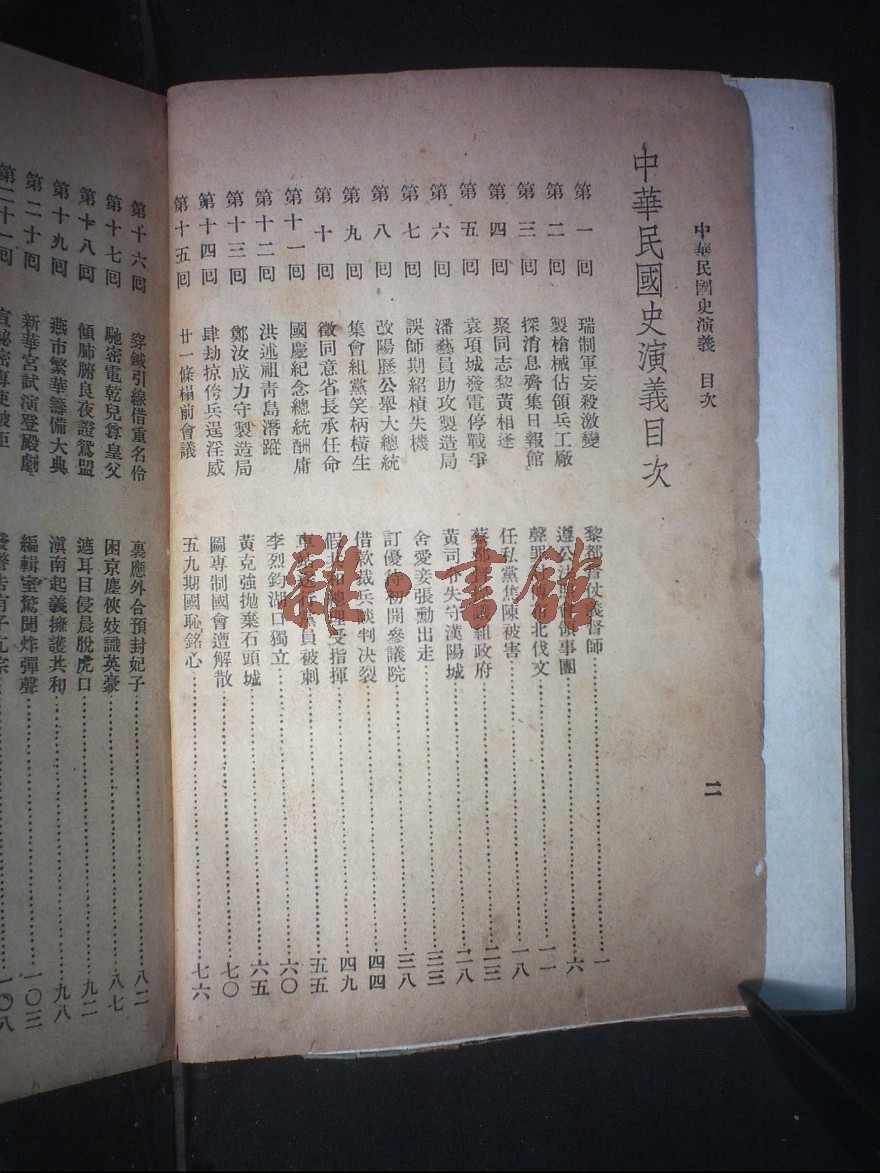 中華民國史演義 目次
二
中華民國史演義目次
第一回 瑞制軍妄殺激變 黎都督仗義督師 一
第二回 製槍械佔領兵工廠 遵公法 領事團 六
第三回 探消息齊集日報館 聲罪 北伐文 一一
第四回 聚同志黎黃相逢 任私黨焦陳被害 一八
第五回 袁項城發電停戰爭 組政府 二三
第六回 潘藝員助攻製造局 黃司令失守漢陽城 二八
第七回 誤師期紹楨失機 舍愛妾張勳出走 三三
第八回 改陽曆公舉大總統 訂優待初開參議院 三八
第九回 集會組黨笑柄橫生 借款裁兵談判決裂 四四
第十回 徵同意省長承任命 假 總理受指揮 四九
第十一回 國慶紀念總統酬庸 黨員被刺 五五
第十二回 洪述祖青島潛蹤 李烈鈞湖口獨立 六〇
第十三回 鄭汝成力守製造局 黃克強拋棄石頭城 六五
第十四回 肆劫掠侉兵逞淫威 圖專制國會遭解散 七〇
第十五回 廿一條榻前會議 五九期國恥銘心 七六
第十六回 穿鍼引線借重名伶 裏應外合預封妃子 八二
第十七回 馳密電乾兒尊皇父 困京塵俠妓識英豪 八七
第十八回 傾肺腑良夜證鴛盟 遮耳目侵晨脫虎口 九二
第十九回 燕市繁華籌備大典 滇南起義擁護共和 九八
第二十回 新華宮試演登殿劇 編輯室驚聞炸彈聲 一〇三
第二十一回 一〇八
雜書館